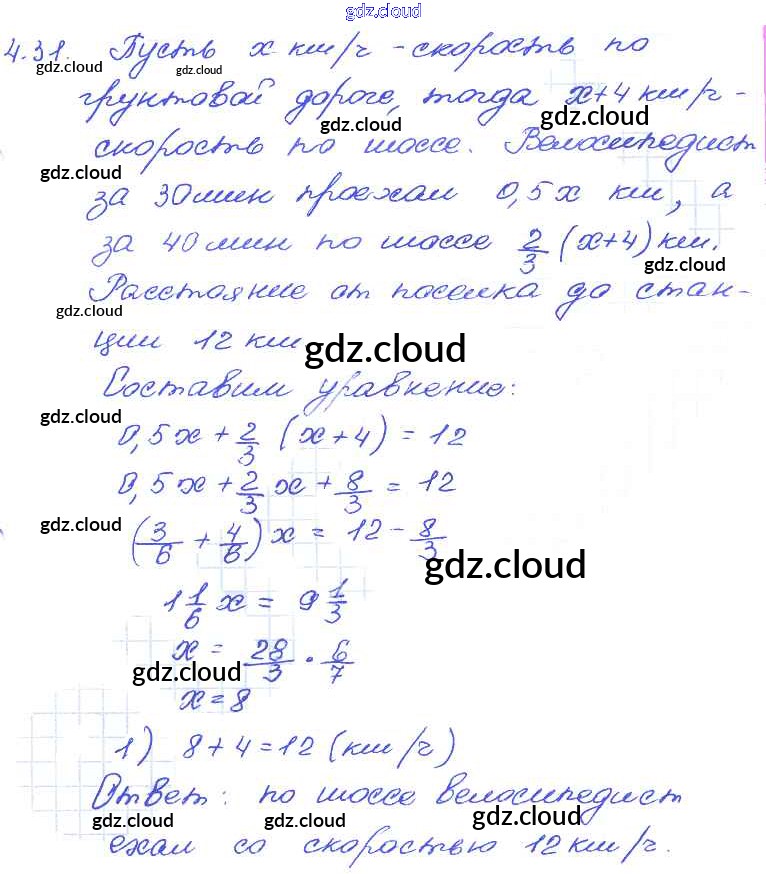 gdz.cloud
4.31. Пусть x км/ч - скорость по
gdz.cloud gdz.cloud
грунтовой дороге, тогда x+4 км/ч -
gdz.cloud gdz.cloud
скорость по шоссе. Велосипедист
gdz.cloud
за 30 мин проехал 0,5x км, а
за 40 мин по шоссе 2/3 (x+4) км.
gdz.cloud
Расстояние от поселка до стан-
gdz.cloud
ции 12 км
gdz.cloud
Составим уравнение:
gdz.cloud
0,5x + 2/3 (x+4) = 12
0,5x + 2/3 x + 8/3 = 12
gdz.cloud
(3/6 + 4/6) x = 12 - 8/3
gdz.cloud
1 1/6 x = 9 1/3
x = 28/3 · 6/7
gdz.cloud
x = 8
1) 8+4=12 (км/ч)
Ответ: по шоссе велосипедист
gdz.cloud gdz.cloud gdz.cloud
ехал со скоростью 12 км/ч.